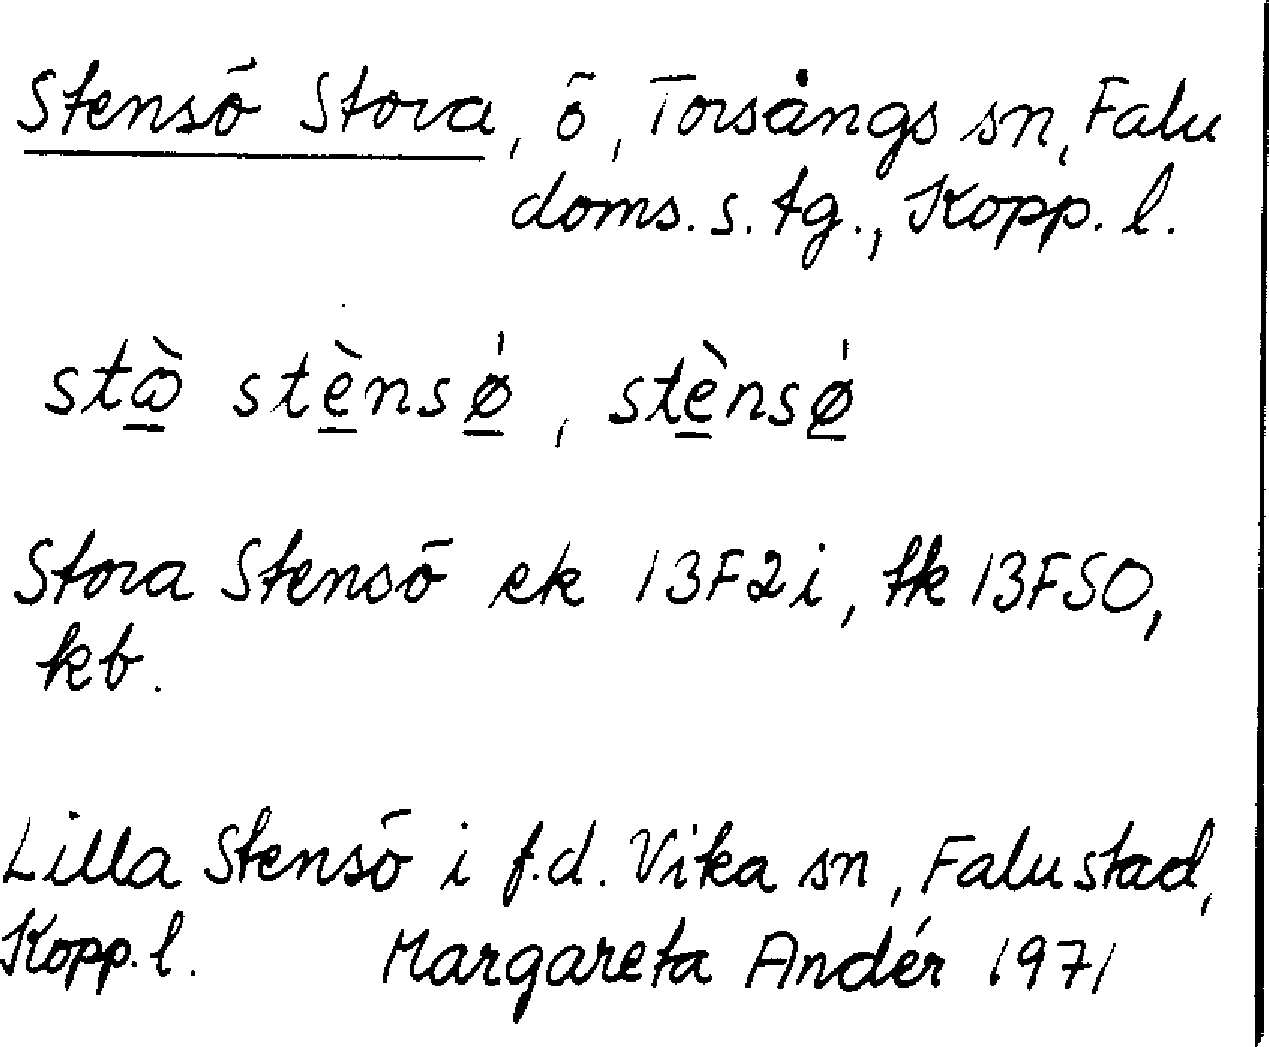 Stensö Stora, ö, Torsångs sn, Falu
doms. s. tg., Kopp. l.
stὼ̠ stè̠nsǿ̠, stè̠nsǿ̠
Stora Stensö ek 13F2i, tk 13F50,
kb.
Lilla Stensö i f.d. Vika sn, Falu stad,
Kopp. l. Margareta Andér 1971